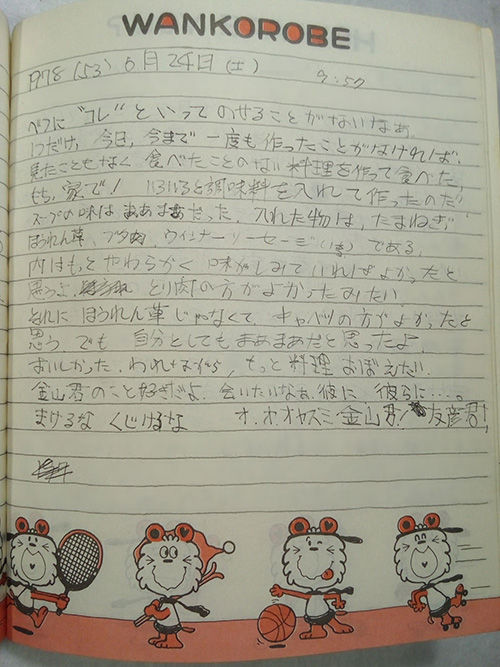 WANKOROBE
1978 (53) 6月24日 (土) 9:57
べつに "コレ" といって のせることがないなぁ。
1つだけ、今日、今まで一度も作ったことがなければ、
見たこともなく 食べたことのない料理を作って食べた。
もち、家で! いろいろと調味料を入れて作ったのだ!
スープの味は まあまあだった。入れた物は、たまねぎ、
ほうれん草、ブタ肉、ウィンナーソーセージ である。
肉はもっとやわらかく 味がしみていればよかったと
思うよ。 とり肉の方がよかったみたい。
それに ほうれん草じゃなくて、キャベツの方がよかったと
思う。でも 自分としてもまあまあだと思ったよ。
おいしかった。われながら、もっと料理おぼえたい。
金山君のこと好きだよ。会いたいなぁ、彼に、彼らに‥‥。
まけるな くじけるな オ・ホ・オヤスミ 金山君! 友彦君!